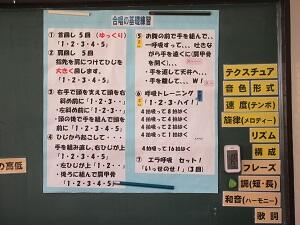 合唱の基礎練習
① 首回し 5回（ゆっくり）
「1・2・3・4・5」
② 肩回し 5回
指先を肩につけてひじを
大きく回します。
「1・2・3・4・5」
③ 右手で頭を支えて頭を右
斜め前に「1・2・3・・」
・左斜め前に「1・2・3・・」
・頭の後で手を組んで頭を
前に「1・2・3・4・5」
④ ひじから起こして・・・
手を組み直し、右ひじが上
「1・2・3・4・5」
・左ひじが上「1・2・・」
・後ろに組んで肩甲骨
「1・2・3・4・5」
⑤ お腹の前で手を組んで、、
一呼吸すって、、吐きな
がら手を遠くに（肩甲骨
を開く）、、、
・手を返して天井へ、、
・手を離して、、脱力
⑥ 呼吸トレーニング
「1・2・3・ハイ！」
4拍吸って 4拍はく
4拍吸って 6拍はく
4拍吸って 8拍はく
4拍吸って16拍はく
⑦ エラ呼吸 セット！
「いっせのせ！」（3回）
テクスチュア
音色
形式
速度（テンポ）
旋律（メロディー）
リズム
構成
フレーズ
調（短・長）
和音（ハーモニー）
歌詞
の高低